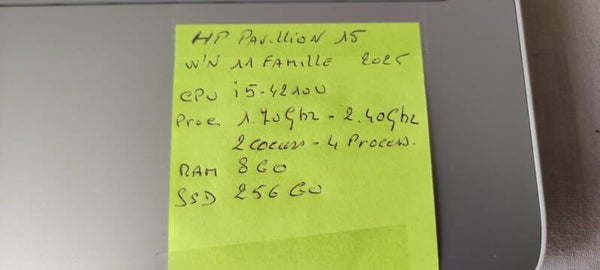 HP PAVILLION 15
WIN 11 FAMILLE 2025
CPU i5-4210U
Proc 1.70Ghz - 2.40Ghz
2 coeurs - 4 Process.
RAM 8 GO
SSD 256 GO